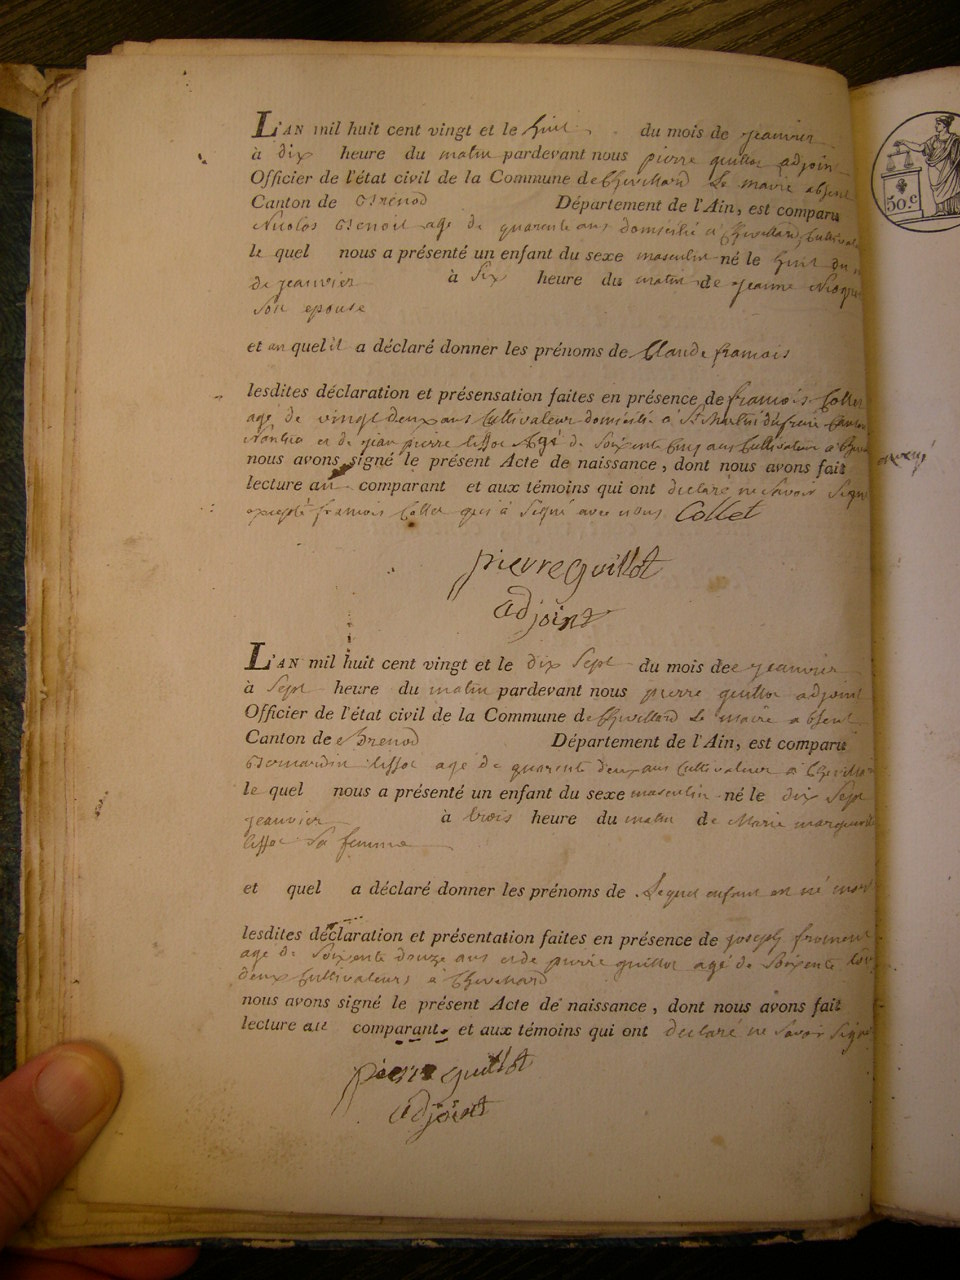 L'AN mil huit cent vingt et le huit du mois de jeanvier
à dix heure du matin pardevant nous pierre guillot adjoin
Officier de l'état civil de la Commune de Chevillard Le maire absent
Canton de Brenod Département de l'Ain, est comparu
Nicolas Benoit age de quarente ans domicilié a Chevillard Cultivat
le quel nous a présenté un enfant du sexe masculin né le huit du
de jeanvier à Six heure du matin de jeanne
Son epouse
et au quel il a déclaré donner les prénoms de Claude francois
lesdites déclaration et présensation faites en présence de francois Collet
age de vingt deux ans Cultivateur domicilié a St Martin du frene Canton
Nantua et de jean pierre lissoc Agé de Soixente Cinq ans Cultivateur a Chevi
nous avons signé le présent Acte de naissance, dont nous avons fait
lecture au comparant et aux témoins qui ont declaré ne Savoir Signe
excepté francois Collet qui à Signé avec nous Collet
pierre Guillot
adjoint
L'AN mil huit cent vingt et le dix Sept du mois de jeanvier
à Sept heure du matin pardevant nous pierre guillot adjoint
Officier de l'état civil de la Commune de Chevillard Le maire absent
Canton de Brenod Département de l'Ain, est comparu
Bernardin lissoc age de quarente deux ans Cultivateur a Chevillar
le quel nous a présenté un enfant du sexe masculin né le dix Sept
jeanvier à trois heure du matin de Marie marguerite
lissoc Sa femme
et quel a déclaré donner les prénoms de Lequel enfant est né mort
lesdites déclaration et présentation faites en présence de joseph froment
age de Soixente douze ans et de pierre guillot agé de Soixente
deux Cultivateurs a Chevillard
nous avons signé le présent Acte de naissance, dont nous avons fait
lecture au comparant et aux témoins qui ont declaré ne Savoir Signe
pierre guillot
adjoint
50.c